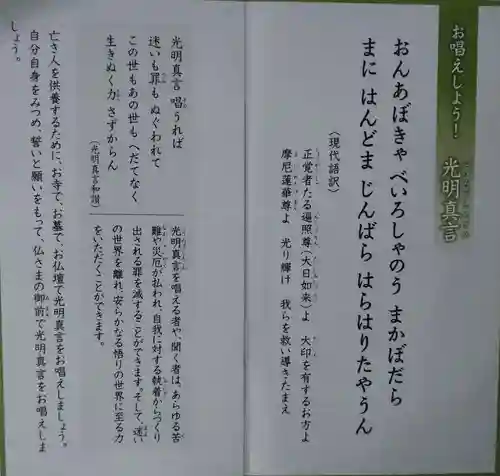 お唱えしよう！ 光明真言
おんあぼきゃ べいろしゃのう まかぼだら
まに はんどま じんばら はらはりたやうん
（現代語訳）
正覚者たる遍照尊（大日如来）よ 大印を有するお方よ
摩尼蓮華尊よ 光り輝け 我らを救い導きたまえ
光明真言 唱うれば
迷いも罪も ぬぐわれて
この世もあの世も へだてなく
生きぬく力 さずからん
（光明真言和讃）
光明真言を唱える者や聞く者は、あらゆる苦
難や災厄が払われ、自我に対する執着からつくり
出される罪を滅することができます。そして、迷い
の世界を離れ、安らかなる悟りの世界に至る力
をいただくことができます。
亡き人を供養するために、お寺で、お墓で、お仏壇で光明真言をお唱えしましょう。
自分自身をみつめ、誓いと願いをもって、仏さまの御前で光明真言をお唱えしま
しょう。